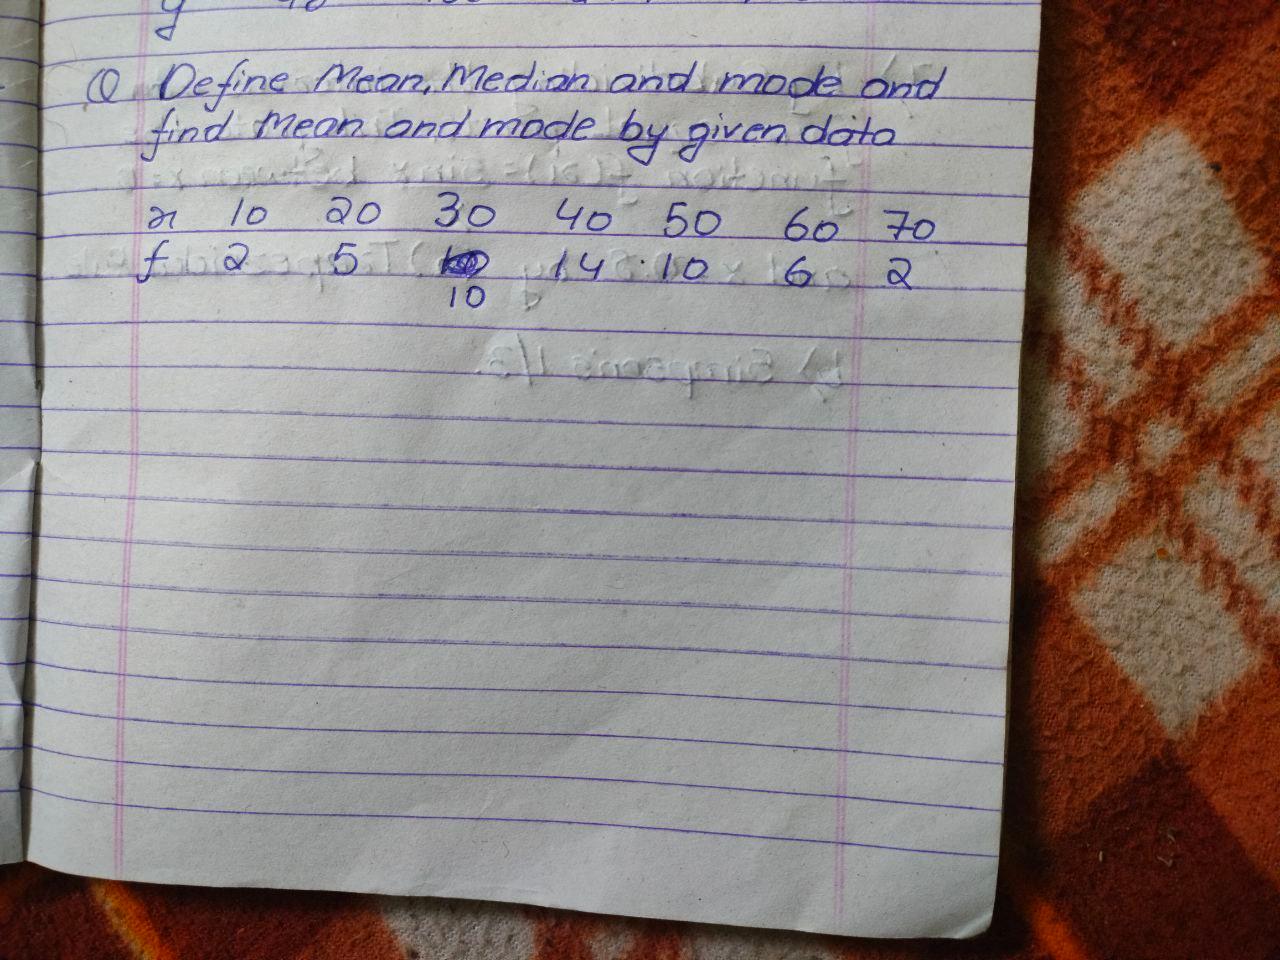 Q Define Mean, Median and mode and
find Mean and mode by given data
x 10 20 30 40 50 60 70
f 2 5 10 14 10 6 2